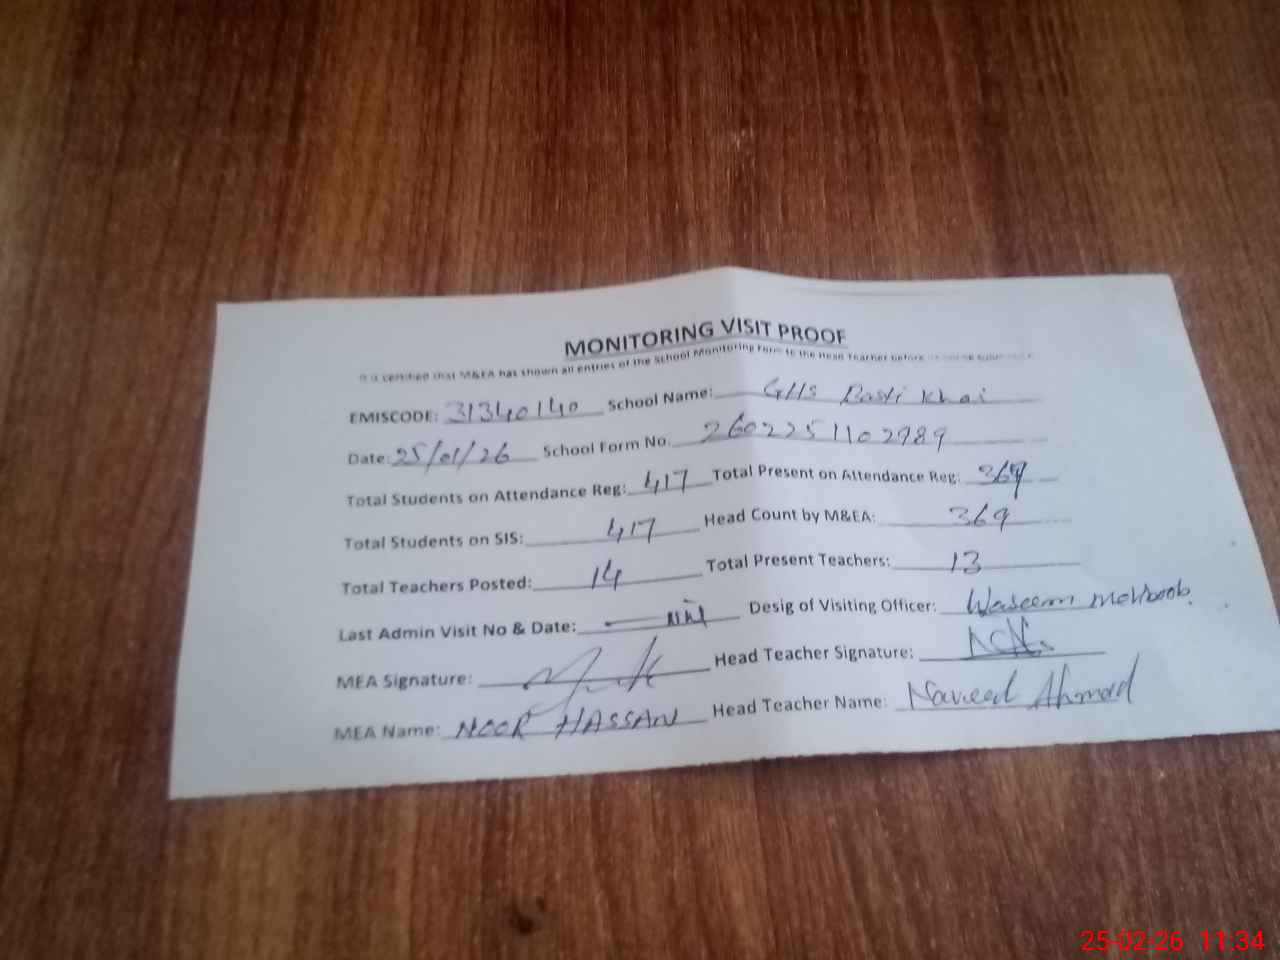 MONITORING VISIT PROOF
It is certified that M&EA has shown all entries of the School Monitoring Form to the Head Teacher before
EMISCODE: 31340140 School Name: GHS Basti Khai
Date: 25/01/26 School Form No. 2602251102989
Total Students on Attendance Reg: 417 Total Present on Attendance Reg: 369
Total Students on SIS: 417 Head Count by M&EA: 369
Total Teachers Posted: 14 Total Present Teachers: 13
Last Admin Visit No & Date: Nil Desig of Visiting Officer: Waseem Mehboob.
MEA Signature: Head Teacher Signature:
MEA Name: NOOR HASSAN Head Teacher Name: Naveed Ahmad
25-02-26 11:34